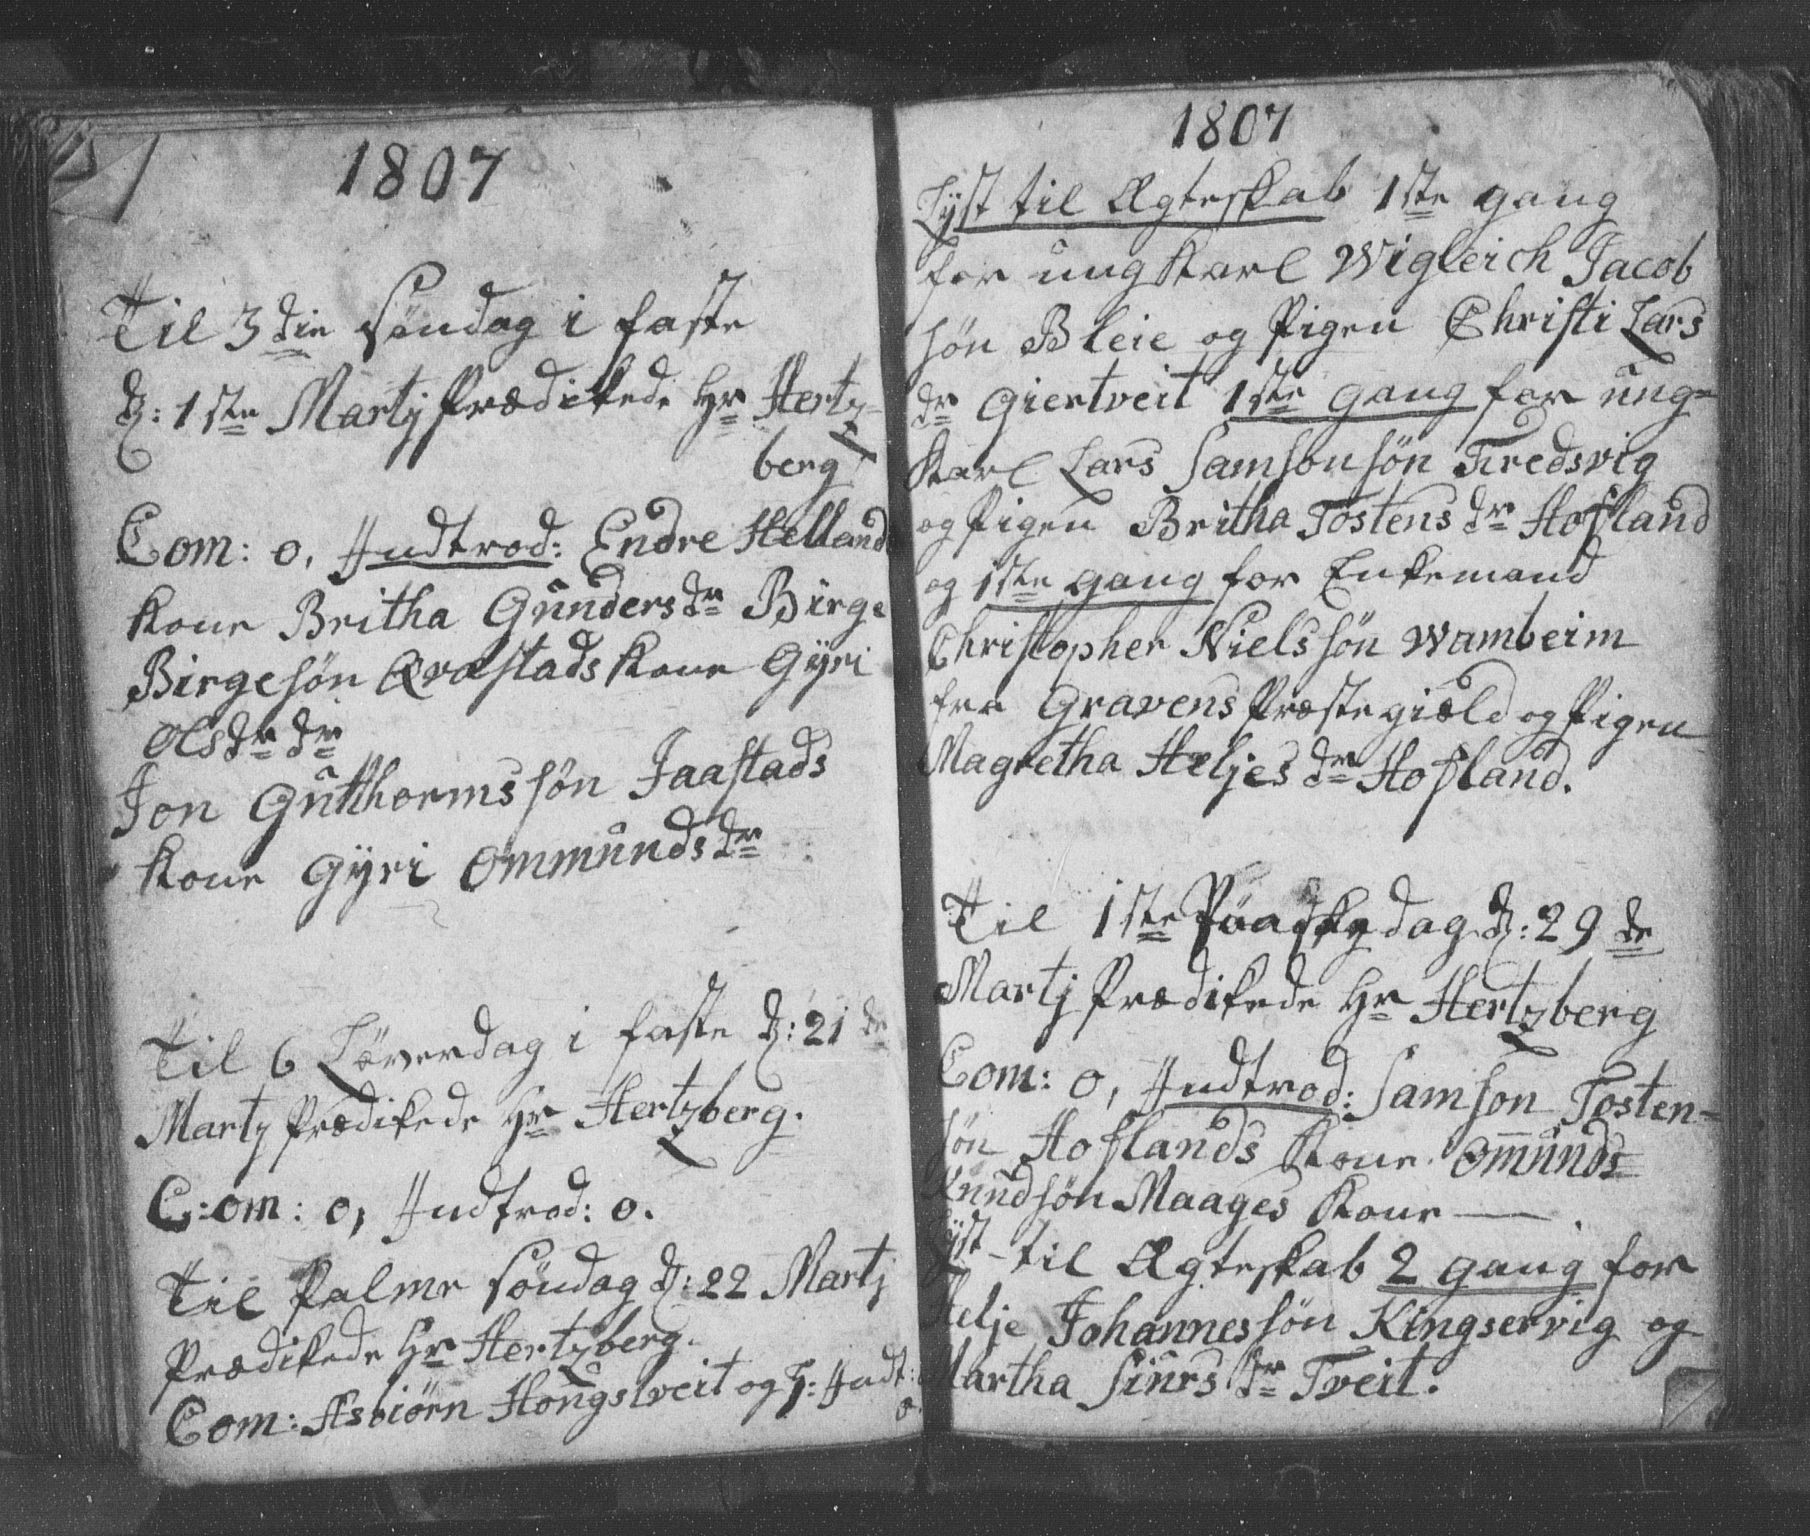 1807
Til 3die Søndag i faste
d: 1ste Martj Prædikede Hr Hertz-
berg
Com: o, Indtrod: Endre Helland
Kone Britha Gunders dr Birge
Birgesøn Qvæstads Kone Gÿri
Olsdr dr
Jon Gutthormssøn Jaastads
Kone Gÿri Ommunds dr
Til 6 Løverdag i faste d: 21 de
Martj Prædikede Hr Hertzberg.
C:om: o, Indtrod: o.
Til Palme søndag d: 22 Martj
Prædikede Hr Hertzberg.
Com: Asbiørn Hougstveit og F: Indt:
o.
1807
Lÿst til Ægteskab 1ste gang
for ungkarl Wigleich Jacob
søn Bleie og Pigen Christi Lars
dr Giertveit 1ste gang for ung-
karl Lars Samsonsøn Tredsvig
og Pigen Britha Tostens dr Hofland
og 1ste gang for Enkemand
Christopher Nielssøn Wambeim
fra Gravens Præstegiæld og Pigen
Magretha Heljes dr Hofland.
Til 1ste Paaske dag d: 29 de
Martj Prædikede Hr Hertzberg
Com: o, Indtrod: Samson Tosten-
søn Hoflands Kone Omunds
Knudsøn Maages Kone —.
Lÿst til Ægteskab 2 gang for
Helje Johannessøn Kingservig og
Martha Siurs dr Tveit.